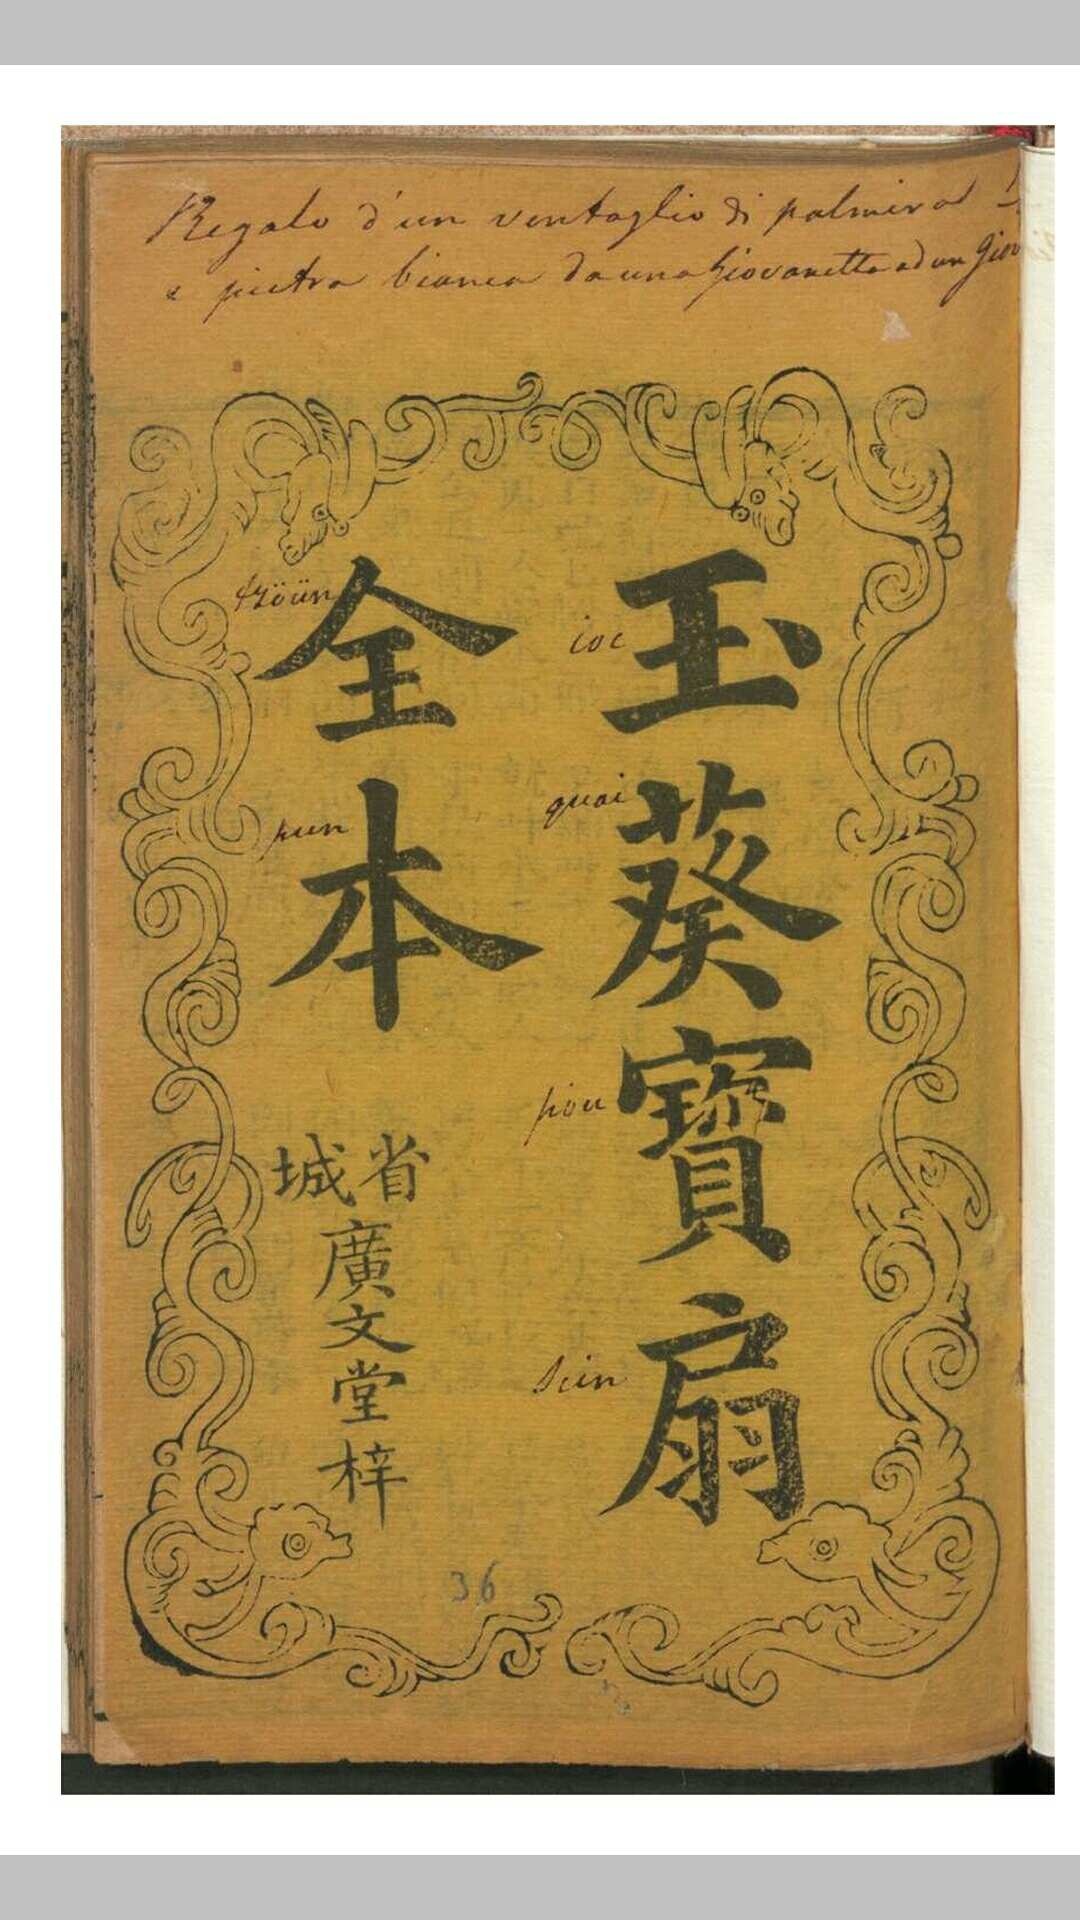 Regalo d'un ventaglio di palmira
e pietra bianca da una Giovanetta ad un Giov
玉葵寶扇
ioc
quai
pou
sien
全本
tzöün
pun
省城
廣文堂梓
36